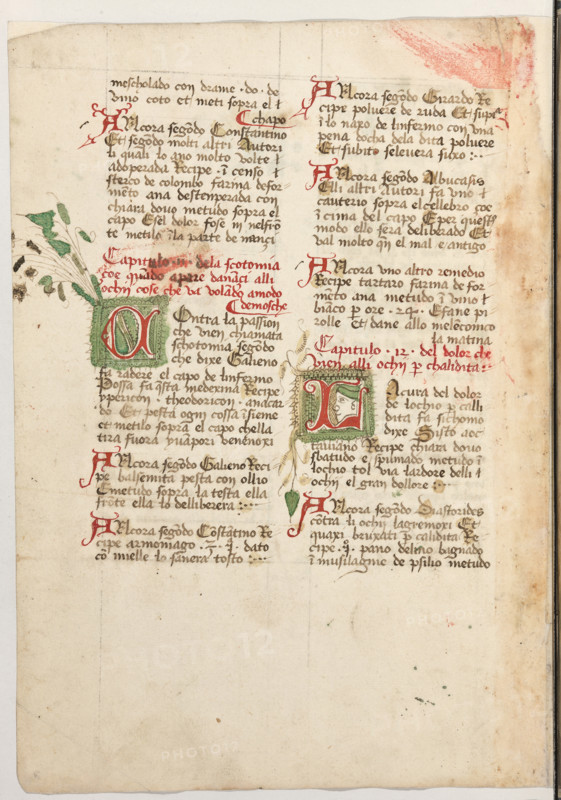 mescholado con drame · do · de
vino coto et meti sopra el l
chapo
Alcora seg̃do Constantino
Et seg̃do molti altri Autori
li quali lo ano molto volte l
adoperada Recipe · ĩcenso l
sterco de colombo farina de for
mẽto ana destenperada con
chiara dovo metudo sopra el
capo Esel dolor fose in nelfrõ
te metilo ĩla parte de nanci
Capitulo dela scotomia
çoe quãdo apare danãci alli
ochii cose che va volãdo amodo
demosche
Contra la passion
che vien chiamata
schotomia seg̃do
che dixe Galieno
fa radere el capo de linfermo
Possa fa q̃sta medexina Recipe
yppericon · theodoricon · anacar
do Et pesta ogni cossa ĩsieme
et metilo sopra el capo chella
tira fuora i vapori venenoxi
Alcora seg̃do Galieno Reci
pe balsemita pesta con ollio
Emetudo sopra la testa ella
frõte ella lo delliberera :~
Alcora seg̃do Cõstãtino Re
cipe armoniago · dato
cõ mielle lo sanera tosto :~
Alcora seg̃do Girardo Re
cipe polvere de ruda Et supia
ĩ lo naxo de linfermo con una
pena docha dela dita polvere
Et subito selevera suxo :~
Alcora seg̃do Albucasis
Elli altri Autori fa uno l
cauterio sopra el cellebro çoe
ĩ cima del capo E per questo
modo ello sera deliberado Et
val molto q̃n el mal e antigo
Alcora uno altro remedio
Recipe tartaro farina de for
mẽto ana metudo ĩ vino l
biãco p ore · 24 · E fane pi
rolle Et dane allo melẽconico
la matina
Capitulo · 12 · del dolor che
vien alli ochii p chalidita :~
Lacura del dolor
de lochio p calli
dita fa sichomo
dixe Sisto aoc
taviano Recipe chiara dovo
sbatudo e spumado metudo ĩ
lochio tol via lardore delli l
ochii el gran dollore :~
Alcora seg̃do Diascorides
cõtra li ochii lagremoxi Et
quaxi bruxati p calidita Re
cipe · pano delino bagnado
ĩ musilagine de psilio metudo